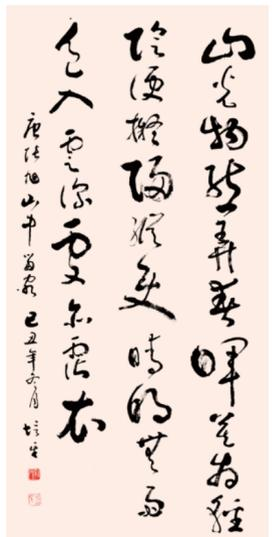 山光物態弄春暉莫為輕
陰便擬歸縱使晴明無雨
色入雲深處亦霑衣
唐張旭山中留客 己丑年冬月